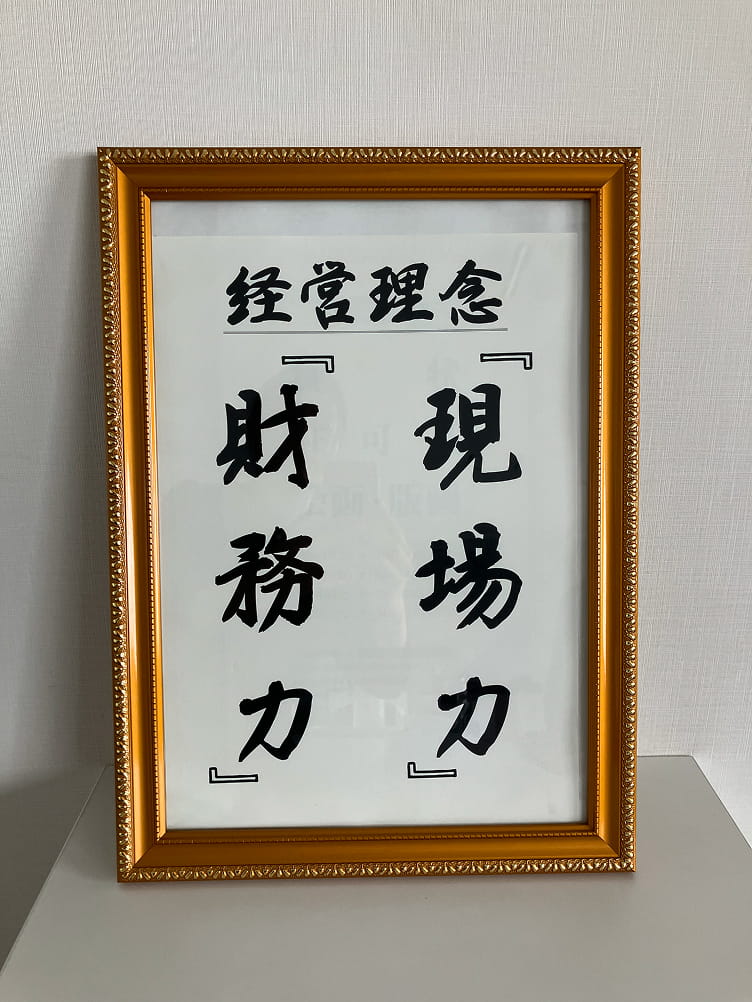 経営理念
『現場力』
『財務力』